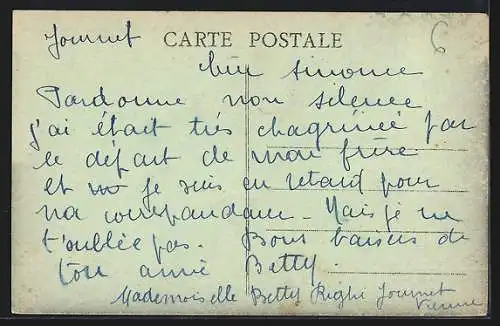 Journet CARTE POSTALE 6
Simonne
Pardonne mon silence
j'ai était trés chagrinée par
le départ de mon frere
et je suis en retard pour
ma correspondance. Mais je ne
t'oublie pas. Bons baisers de
ton amie Betty.
Mademoiselle Betty Righi Journet
Vienne